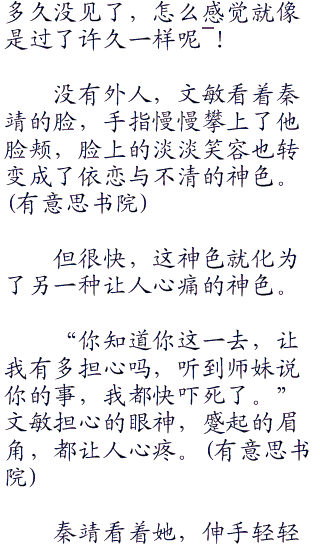 多久没见了，怎么感觉就像
是过了许久一样呢¯！
没有外人，文敏看着秦
靖的脸，手指慢慢攀上了他
脸颊，脸上的淡淡笑容也转
变成了依恋与不清的神色。
(有意思书院)
但很快，这神色就化为
了另一种让人心痛的神色。
“你知道你这一去，让
我有多担心吗，听到师妹说
你的事，我都快吓死了。”
文敏担心的眼神，蹙起的眉
角，都让人心疼。(有意思书
院)
秦靖看着她，伸手轻轻